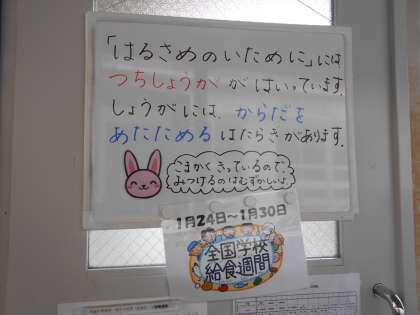 「はるさめのいために」には
つちしょうががはいっています。
しょうがには、からだを
あたためるはたらきがあります。
こまかくきっているので、
みつけるのはむずかしいよ
1月24日～1月30日
全国学校
給食週間